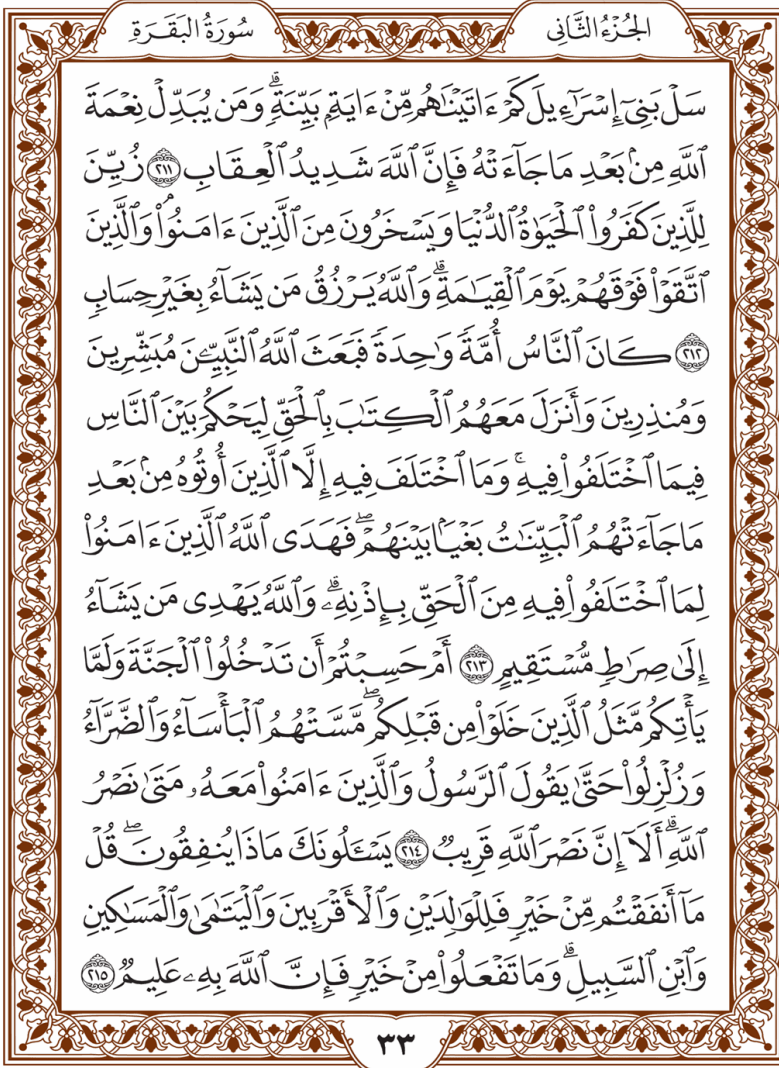 الجُزْءُ الثَّانِى
سُورَةُ البَقَرَةِ
سَلۡ بَنِيٓ إِسۡرَٰٓءِيلَ كَمۡ ءَاتَيۡنَٰهُم مِّنۡ ءَايَةِۭ بَيِّنَةٖۗ وَمَن يُبَدِّلۡ نِعۡمَةَ
ٱللَّهِ مِنۢ بَعۡدِ مَا جَآءَتۡهُ فَإِنَّ ٱللَّهَ شَدِيدُ ٱلۡعِقَابِ ٢١١ زُيِّنَ
لِلَّذِينَ كَفَرُواْ ٱلۡحَيَوٰةُ ٱلدُّنۡيَا وَيَسۡخَرُونَ مِنَ ٱلَّذِينَ ءَامَنُواْۘ وَٱلَّذِينَ
ٱتَّقَوۡاْ فَوۡقَهُمۡ يَوۡمَ ٱلۡقِيَٰمَةِۗ وَٱللَّهُ يَرۡزُقُ مَن يَشَآءُ بِغَيۡرِ حِسَابٖ
٢١٢ كَانَ ٱلنَّاسُ أُمَّةٗ وَٰحِدَةٗ فَبَعَثَ ٱللَّهُ ٱلنَّبِيِّـۧنَ مُبَشِّرِينَ
وَمُنذِرِينَ وَأَنزَلَ مَعَهُمُ ٱلۡكِتَٰبَ بِٱلۡحَقِّ لِيَحۡكُمَ بَيۡنَ ٱلنَّاسِ
فِيمَا ٱخۡتَلَفُواْ فِيهِۚ وَمَا ٱخۡتَلَفَ فِيهِ إِلَّا ٱلَّذِينَ أُوتُوهُ مِنۢ بَعۡدِ
مَا جَآءَتۡهُمُ ٱلۡبَيِّنَٰتُ بَغۡيَۢا بَيۡنَهُمۡۖ فَهَدَى ٱللَّهُ ٱلَّذِينَ ءَامَنُواْ
لِمَا ٱخۡتَلَفُواْ فِيهِ مِنَ ٱلۡحَقِّ بِإِذۡنِهِۦۗ وَٱللَّهُ يَهۡدِي مَن يَشَآءُ
إِلَىٰ صِرَٰطٖ مُّسۡتَقِيمٍ ٢١٣ أَمۡ حَسِبۡتُمۡ أَن تَدۡخُلُواْ ٱلۡجَنَّةَ وَلَمَّا
يَأۡتِكُم مَّثَلُ ٱلَّذِينَ خَلَوۡاْ مِن قَبۡلِكُمۖ مَّسَّتۡهُمُ ٱلۡبَأۡسَآءُ وَٱلضَّرَّآءُ
وَزُلۡزِلُواْ حَتَّىٰ يَقُولَ ٱلرَّسُولُ وَٱلَّذِينَ ءَامَنُواْ مَعَهُۥ مَتَىٰ نَصۡرُ
ٱللَّهِۗ أَلَآ إِنَّ نَصۡرَ ٱللَّهِ قَرِيبٞ ٢١٤ يَسۡـَٔلُونَكَ مَاذَا يُنفِقُونَۖ قُلۡ
مَآ أَنفَقۡتُم مِّنۡ خَيۡرٖ فَلِلۡوَٰلِدَيۡنِ وَٱلۡأَقۡرَبِينَ وَٱلۡيَتَٰمَىٰ وَٱلۡمَسَٰكِينِ
وَٱبۡنِ ٱلسَّبِيلِۗ وَمَا تَفۡعَلُواْ مِنۡ خَيۡرٖ فَإِنَّ ٱللَّهَ بِهِۦ عَلِيمٞ ٢١٥
٣٣